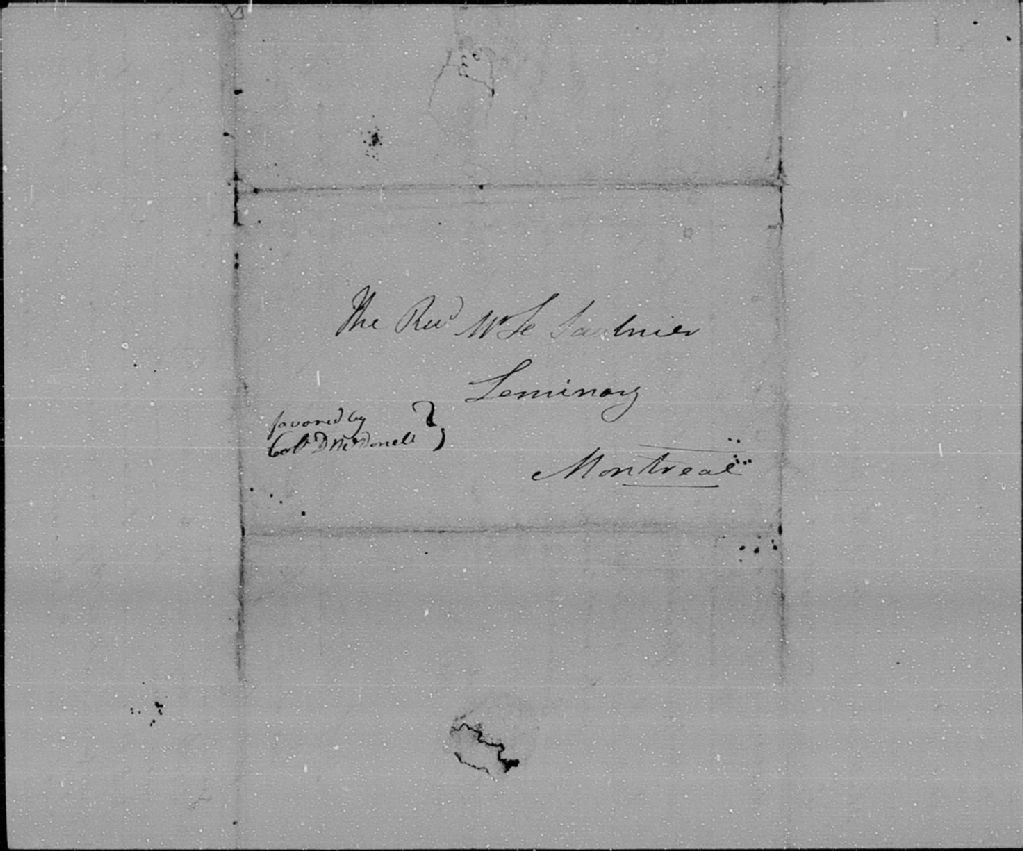 The Revd Mr Le Saulnier
Seminary
favored by
Colł D McDonell
Montreal